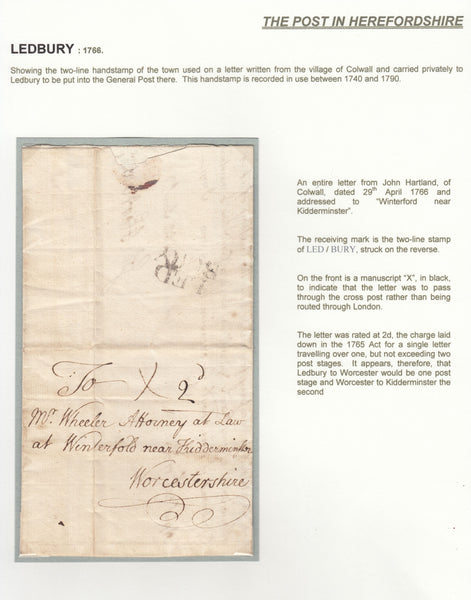 THE POST IN HEREFORDSHIRE
LEDBURY : 1766.
Showing the two-line handstamp of the town used on a letter written from the village of Colwall and carried privately to
Ledbury to be put into the General Post there. This handstamp is recorded in use between 1740 and 1790.
An entire letter from John Hartland, of
Colwall, dated 29th April 1766 and
addressed to "Winterford near
Kidderminster".
The receiving mark is the two-line stamp
of LED / BURY, struck on the reverse.
On the front is a manuscript "X", in black,
to indicate that the letter was to pass
through the cross post rather than being
routed through London.
The letter was rated at 2d, the charge laid
down in the 1765 Act for a single letter
travelling over one, but not exceeding two
post stages. It appears, therefore, that
Ledbury to Worcester would be one post
stage and Worcester to Kidderminster the
second
LED
To X 2d
Mr. Wheeler Attorney at Law
at Winterfold near Kidderminster
Worcestershire